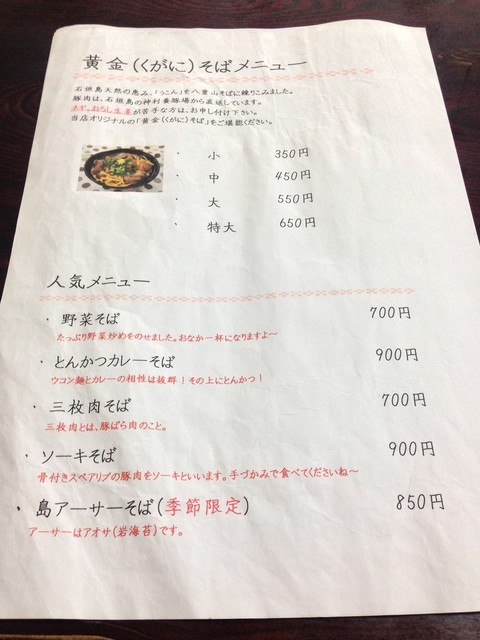 黄金(くがに)そばメニュー
石垣島天然の恵み、「うこん」を八重山そばに練りこみました。
豚肉は、石垣島の神村養豚場から直送しています。
ネギ、おろし生姜が苦手な方は、お申し付け下さい。
当店オリジナルの「黄金(くがに)そば」をご堪能ください。
・ 小 350円
・ 中 450円
・ 大 550円
・ 特大 650円
人気メニュー
・ 野菜そば 700円
たっぷり野菜炒めをのせました。おなか一杯になりますよ~
・ とんかつカレーそば 900円
ウコン麺とカレーの相性は抜群!その上にとんかつ!
・ 三枚肉そば 700円
三枚肉とは、豚ばら肉のこと。
・ ソーキそば 900円
骨付きスペアリブの豚肉をソーキといいます。手づかみで食べてくださいね~
・ 島アーサーそば(季節限定) 850円
アーサーはアオサ(岩海苔)です。